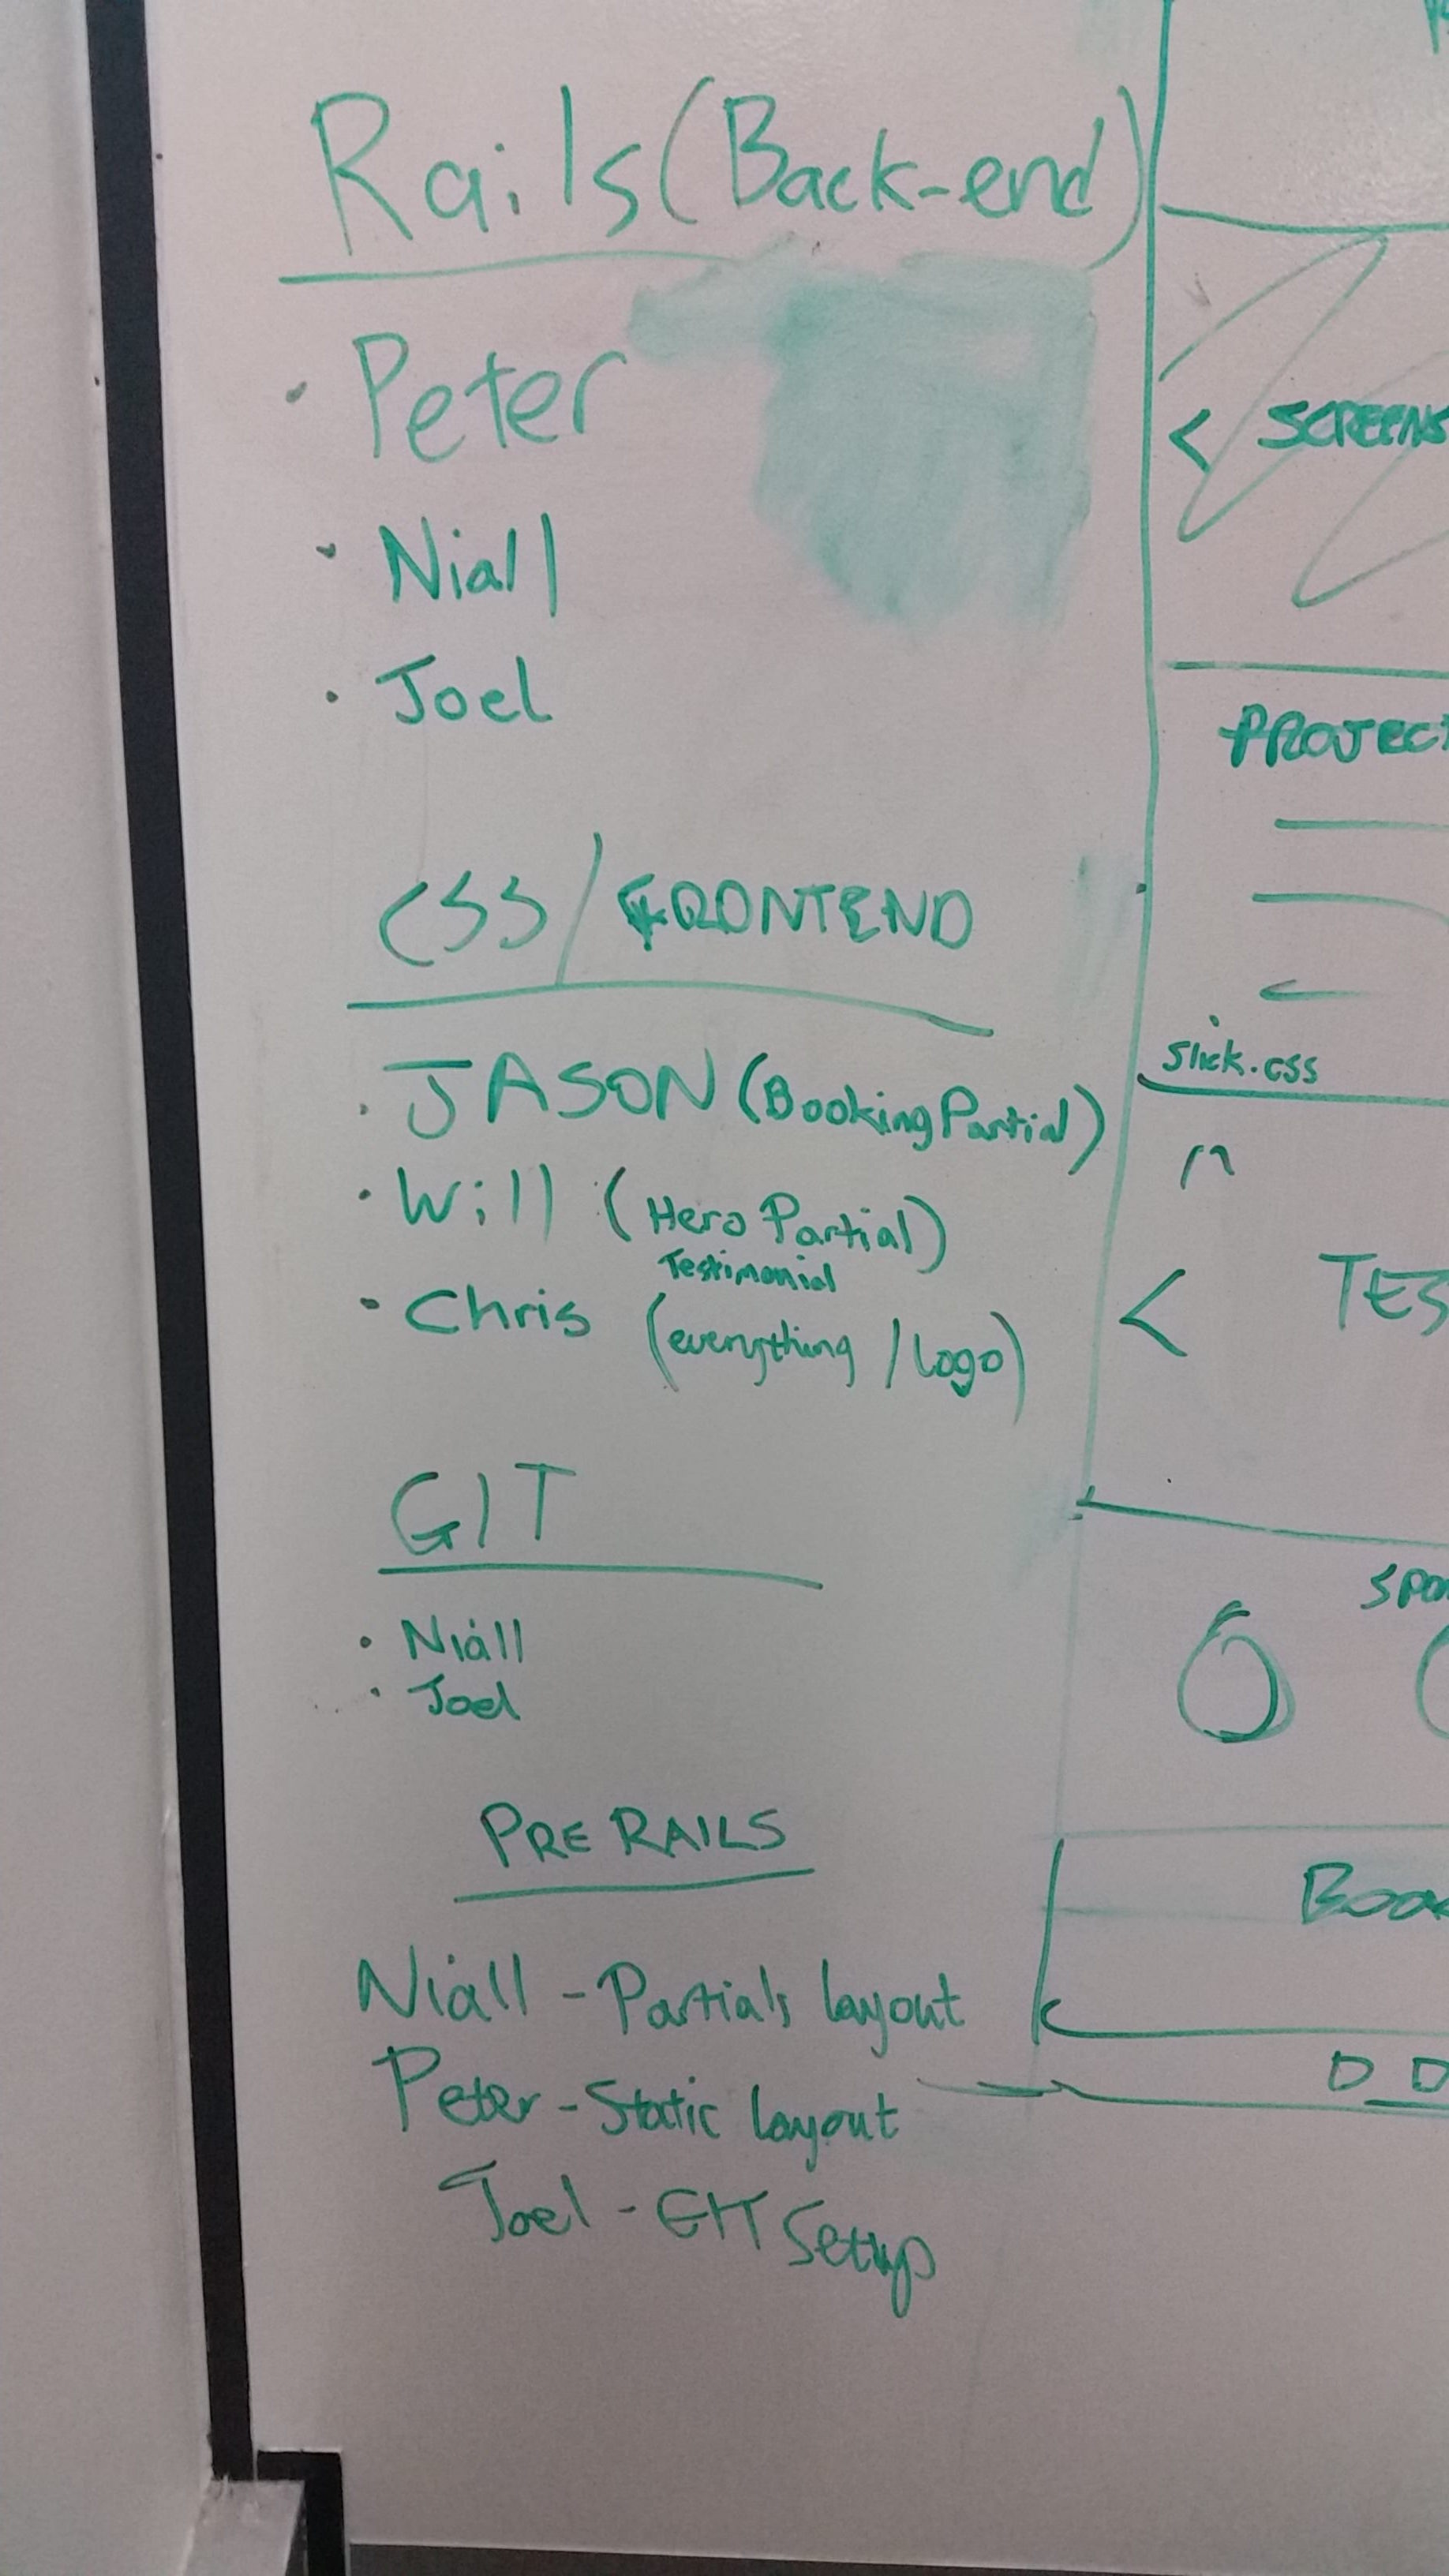 Rails (Back-end)
· Peter
· Niall
· Joel
CSS / FRONTEND
· JASON (Booking Partial)
· Will (Hero Partial)
Testimonial
· Chris (everything / Logo)
GIT
· Niall
· Joel
PRE RAILS
Niall - Partials layout
Peter - Static layout
Joel - GIT Setup
< SCREENS
PROJECT
slick.css
< TES
SPO